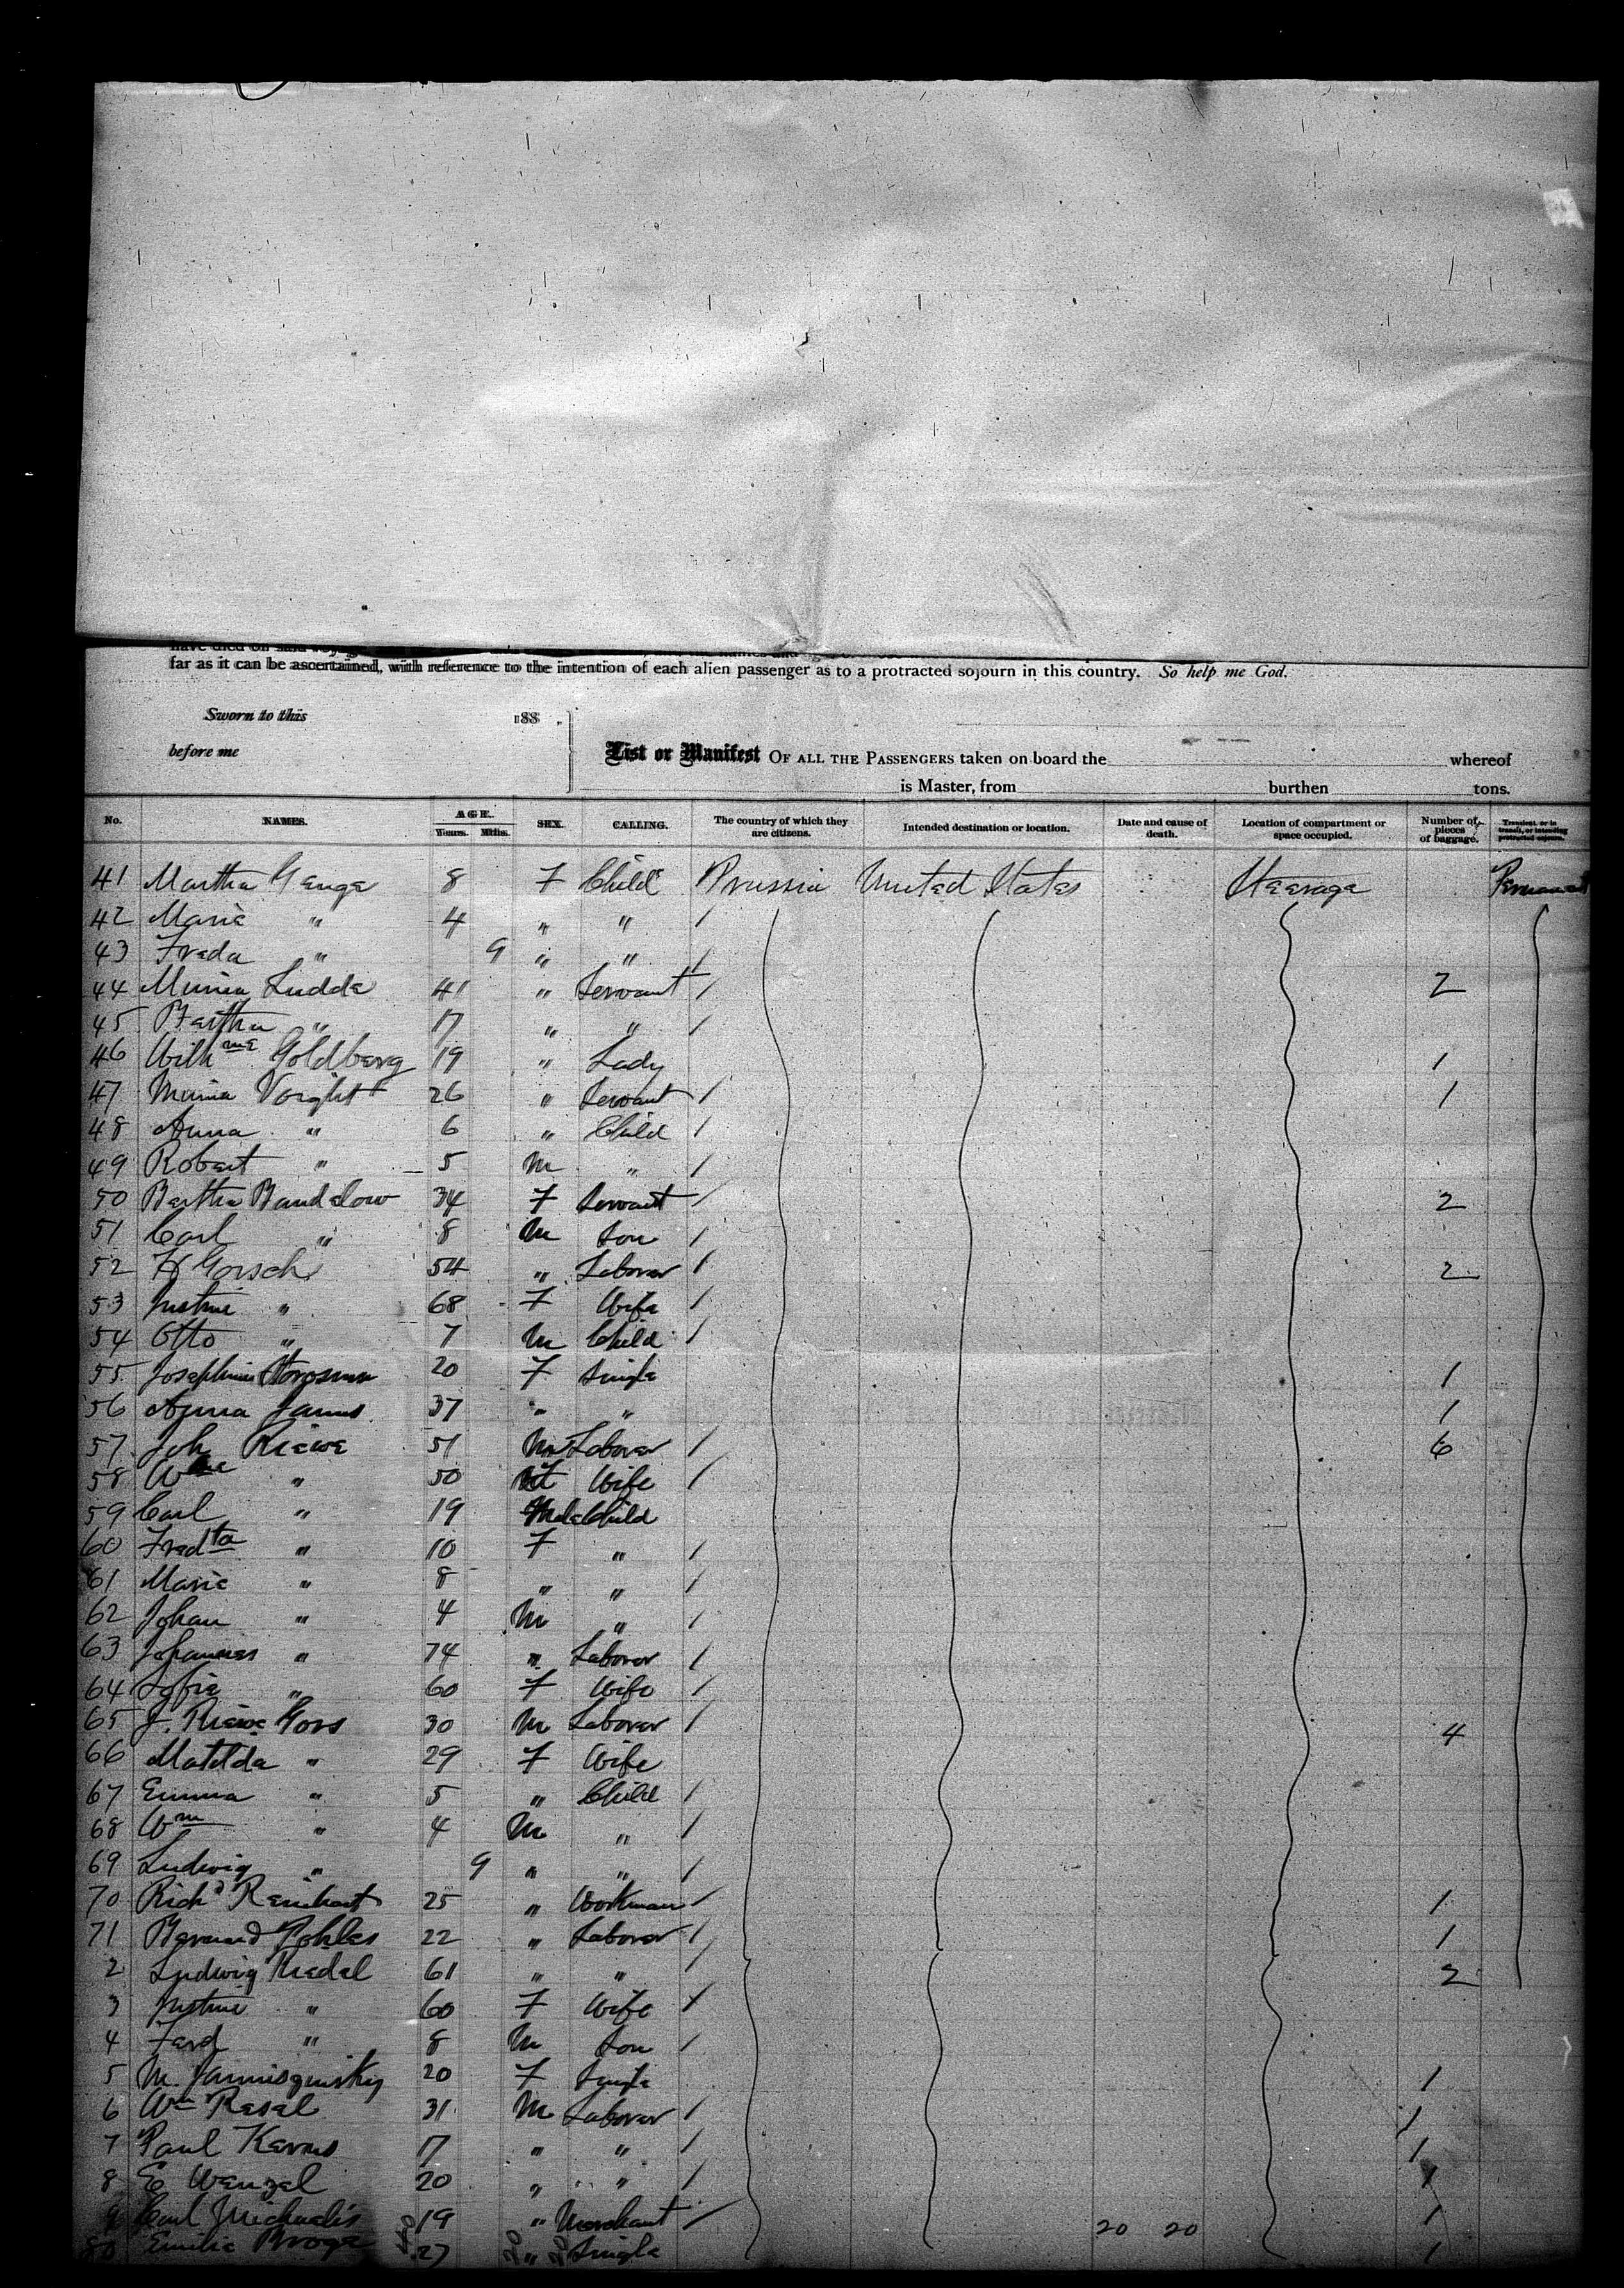 far as it can be ascertained, with reference to the intention of each alien passenger as to a protracted sojourn in this country. So help me God.
Sworn to this 188 .
before me
List or Manifest OF ALL THE PASSENGERS taken on board the whereof
is Master, from burthen tons.
No. NAMES. AGE. Years. Mths. SEX. CALLING. The country of which they are citizens. Intended destination or location. Date and cause of death. Location of compartment or space occupied. Number of pieces of baggage. Transient, or in transit, or intending protracted sojourn.
41 Martha Genge 8 F Child Prussia United States Steerage Permanent
42 Marie " 4 " " /
43 Freda " 9 " " /
44 Minna Ludde 41 " Servant / 2
45 Bertha " 17 " " /
46 Wilhme Goldberg 19 " Lady 1
47 Minna Voight 26 " Servant / 1
48 Anna " 6 " Child /
49 Robert " 5 M " /
50 Bertha Bandelow 34 F Servant / 2
51 Carl " 8 M Son /
52 H Gorsch 54 " Laborer / 2
53 Justine " 68 F Wife /
54 Otto " 7 M Child /
55 Josephine 20 F Single 1
56 Anna Janus 37 " " 1
57 Joh Riewe 51 M Laborer / 6
58 " 50 Wife /
59 Carl " 19 Child
60 Fredta " 10 F " /
61 Marie " 8 " " /
62 Johan " 4 M " /
63 Johannes " 74 " Laborer /
64 Sofie " 60 F Wife /
65 J. Riewe Gors 30 M Laborer / 4
66 Matilda " 29 F Wife
67 Emma " 5 " Child /
68 Wm " 4 M " /
69 Ludwig " 9 " " /
70 Richd Reinhart 25 " Workman / 1
71 Bernard Pohles 22 " Laborer / 1
2 Ludwig Riedel 61 " " / 2
3 Justine " 60 F Wife /
4 Ferd " 8 M Son /
5 M. 20 F Single 1
6 Wm Resel 31 M Laborer / 1
7 Paul Kerms 17 " " / 1
8 E Wenzel 20 " " / 1
9 Carl Michaelis 19 " Merchant / 20 20 1
80 Emilie Broge 27 " Single 1